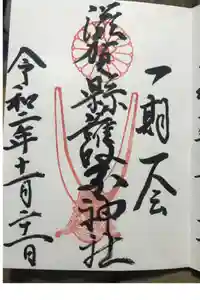 一期一会
滋賀縣護國神社
令和二年十一月二十一日